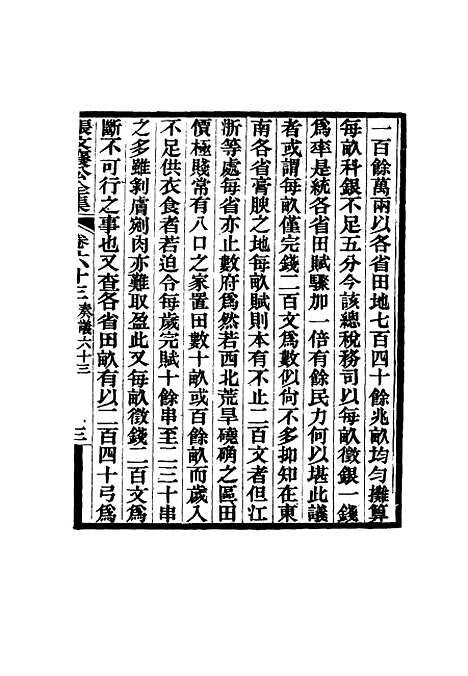 一百餘萬兩以各省田地七百四十餘兆畝均勻攤算
每畝科銀不足五分今該總稅務司以每畝徵銀一錢
爲率是統各省田賦驟加一倍有餘民力何以堪此議
者或謂每畝僅完錢二百文爲數似尙不多抑知在東
南各省膏腴之地每畝賦則本有不止二百文者但江
浙等處每省亦止數府爲然若西北荒旱磽确之區田
價極賤常有八口之家置田數十畝或百餘畝而歲入
不足供衣食者若迫令每歲完賦十餘串至二三十串
之多雖剝膚剜肉亦難取盈此又每畝徵錢二百文爲
斷不可行之事也又查各省田畝有以二百四十弓爲
張文襄公全集 卷六十三 奏議六十三 三